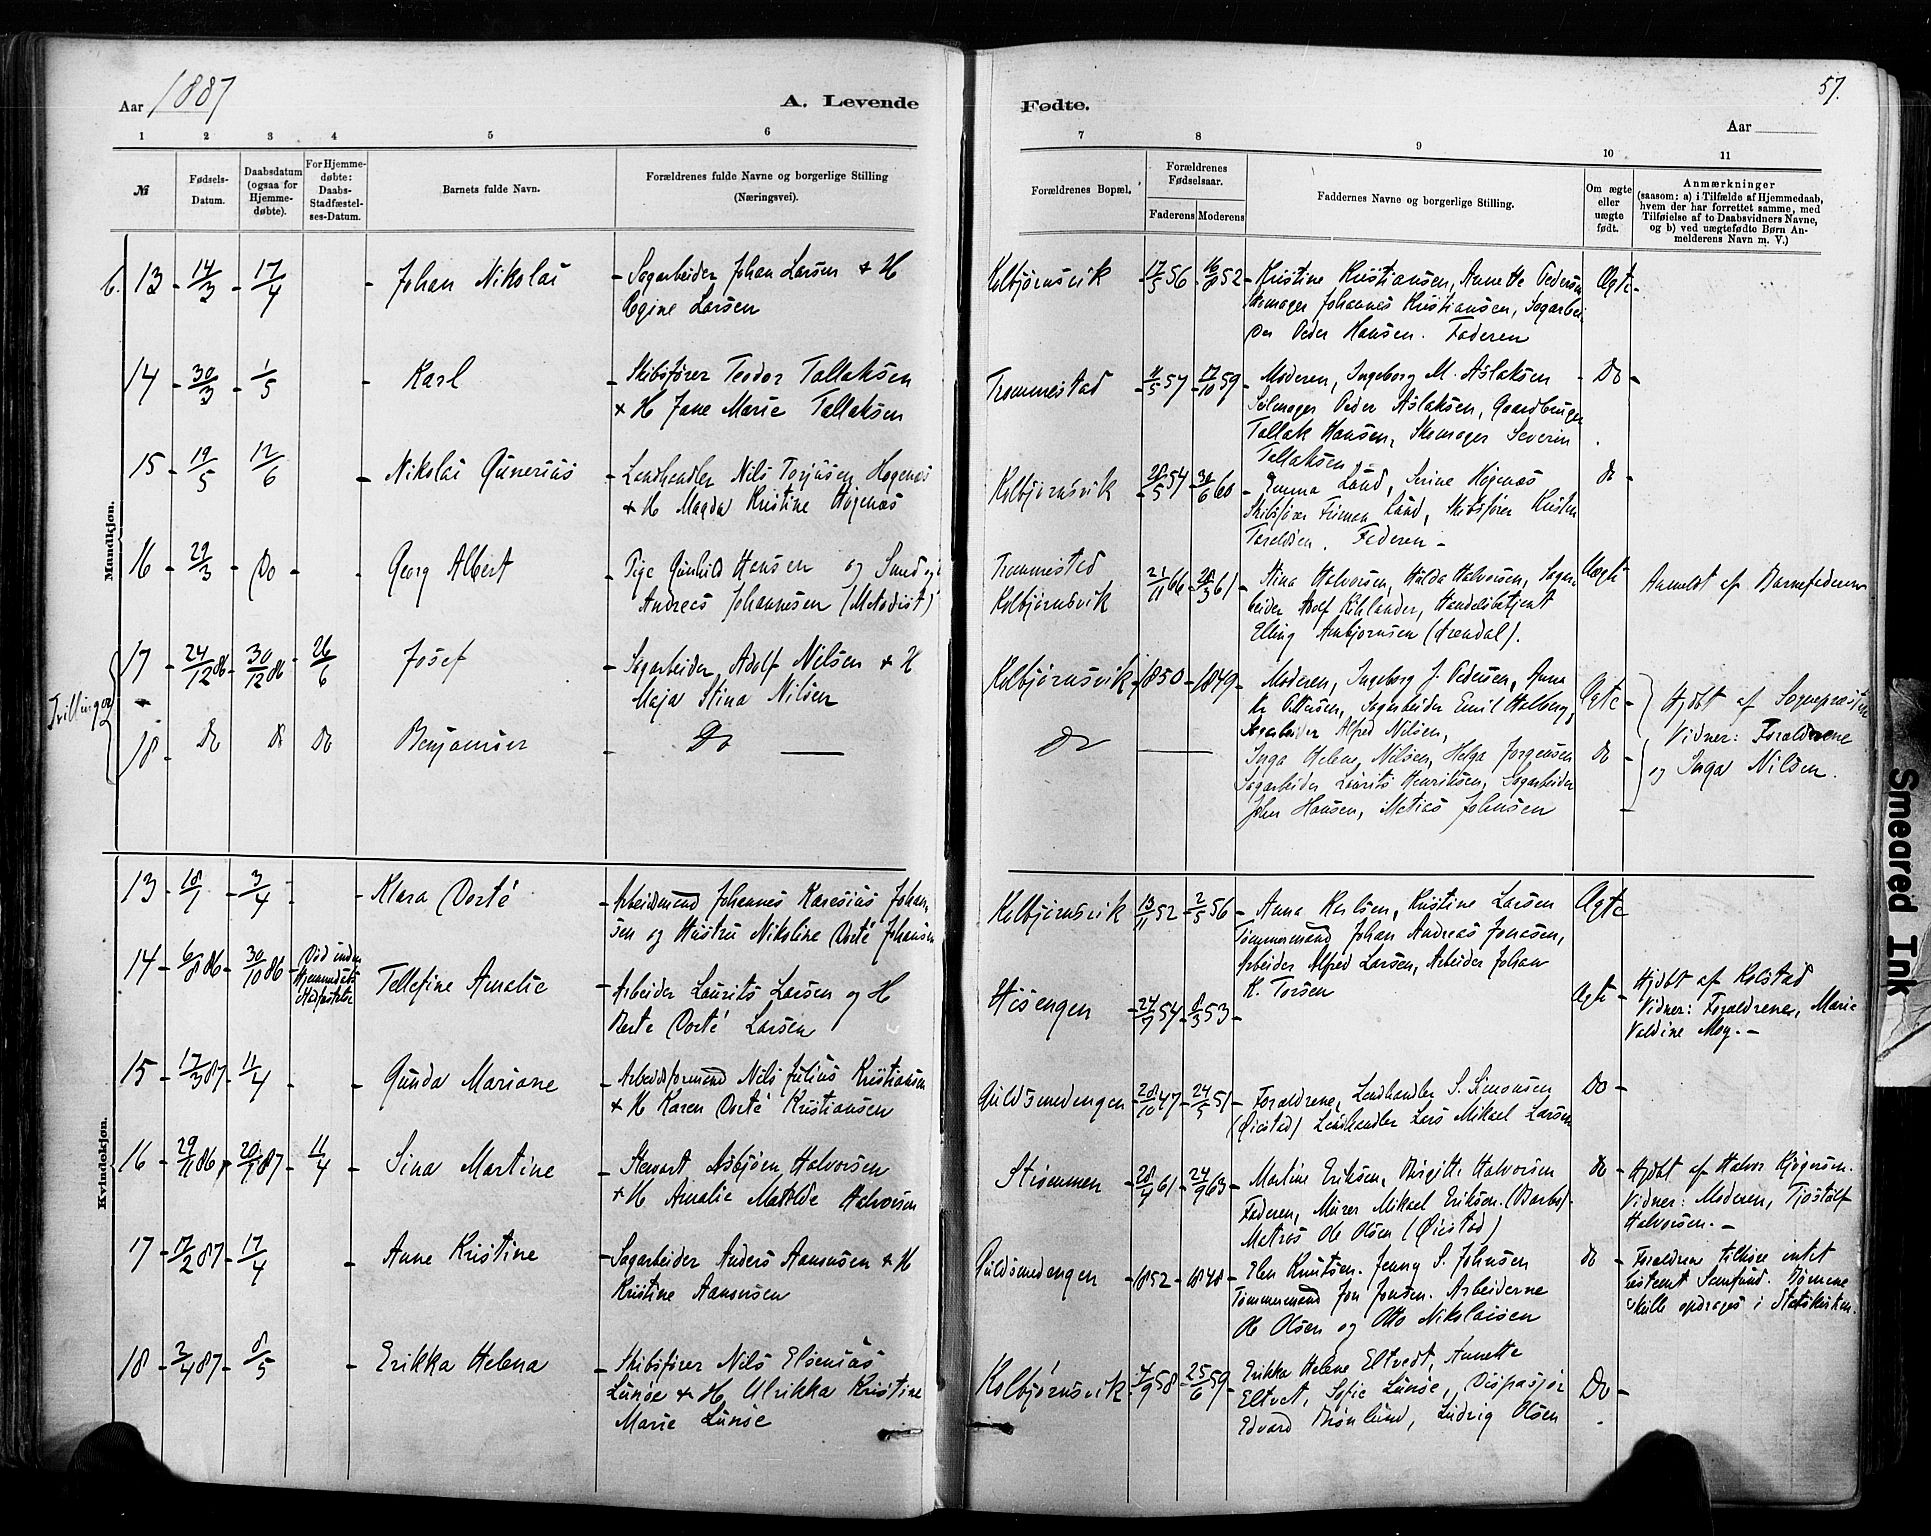 Aar 1887
A. Levende
Fødte.
57.
Aar
1 2 3 4 5 6 7 8 9 10 11
№
Fødsels-Datum.
Daabsdatum (ogsaa for Hjemmedøbte).
For Hjemmedøbte: Daabs-Stadfæstelses-Datum.
Barnets fulde Navn.
Forældrenes fulde Navne og borgerlige Stilling (Næringsvei).
Forældrenes Bopæl.
Forældrenes Fødselsaar.
Faderens Moderens
Faddernes Navne og borgerlige Stilling.
Om ægte eller uægte født.
Anmærkninger
(saasom: a) i Tilfælde af Hjemmedaab, hvem der har forrettet samme, med Tilføielse af to Daabsvidners Navne, og b) ved uægtefødte Børn Anmelderens Navn m. V.)
Mandkjøn.
6. 13 14/3 17/4 Johan Nikolai
Sagarbeider Johan Larsen & H
Regine Larsen
Kolbjørnsvik 17/5 56 16/8 52
Kristine Kristiansen, Annette Pedersen
Skomager Johannes Kristiansen, Sagarbei
der Peder Hansen. Faderen
Ægte
14 30/3 1/5 Karl
Skibsfører Teodor Tallaksen
& H Jane Marie Tallaksen
Trommestad 11/5 57 17/10 59
Moderen, Ingeborg M. Aslaksen
Seilmager Peder Aslaksen, Gaardbruger
Tallak Hansen, Skomager Severin
Tallaksen
Do
15 19/5 12/6 Nikolai Gunerius
Landhandler Nils Torjusen Høgenæs
& H Magda Kristine Høgenæs
Kolbjørnsvik 28/5 54 30/6 60
Emma Lund, Serine Høgenæs
Skibsfører Firman Lund, Skibsfører Kristen
Taraldsen. Faderen
do
16 29/3 Do Georg Albert
Pige Gunhild Hansen og Smed
Andreas Johannesen (Metodist)
Trommestad
Kolbjørnsvik 21/11 66 28/3 61
Stina Halvorsen, Hulda Halvorsen, Sagar
beider Adolf Kihlander, Handelsbetjent
Elling Arnbjørnsen (Arendal).
Uægte
Anmeldt af Barnefaderen
Tvillinger
17 24/12 86 30/12 86 26/6 Josef
Sagarbeider Adolf Nilsen & H
Maja Stina Nilsen
Kolbjørnsvik 1850 1849
Moderen, Ingeborg J. Pedersen, Anna
Kr Ottersen, Sagarbeider Emil Halberg,
Sagarbeider Alfred Nilsen,
Ægte
Hjdbt af Sognepræsten
Vidner: Forældrene
og Inga Nilsen.
18 Do Do Do Benjamin
Do
Do
Inga Helene Nilsen, Helga Jørgensen
Sagarbeider Laurits Henriksen, Sagarbeider
John Hansen, Matias Johnsen
Do
Kvindekjøn.
13 18/1 3/4 Klara Dorté
Arbeidsmand Johannes Karesius Johan
sen og Hustru Nikoline Dorté Johansen
Kolbjørnsvik 13/11 52 2/5 56
Anna Karlsen, Kristine Larsen
Tømmermand Johan Andreas Jonassen,
Arbeider Alfred Larsen, Arbeider Johan
K. Torsen
Ægte
14 6/8 86 30/10 86
Død inden
Hjemmedaabs
Stadfæstelse
Tellefine Amalie
Arbeider Laurits Larsen og H
Berte Dorté Larsen
Hisengen 24/9 54 8/3 53
Ægte
Hjdbt af Kolstad
Vidner: Forældrene, Marie
Valdine Moy.
15 17/3 87 11/4 Gunda Mariane
Arbeidsformand Nils Julius Kristiansen
& H Karen Dorté Kristiansen
Guldsmedengen 28/10 47 24/5 51
Forældrene, Landhandler S. Simonsen
(Øiestad) Landhandler Lars Mikael Larsen
Do
16 29/11 86 20/1 87 11/4 Sina Martine
Stewart Asbjørn Halvorsen
& H Amalie Matilde Halvorsen
Strømmen 28/4 61 24/9 63
Martine Eriksen, Birgitte Halvorsen
Faderen, Murer Mikael Eriksen (Barbu)
Matros Ole Olsen (Øiestad)
Do
Hjdbt af Halvor Kjøgersen.
Vidner: Moderen, Tjøstolf
Halvorsen.
17 17/2 87 17/4 Anne Kristine
Sagarbeider Anders Aanonsen & H
Kristine Aanonsen
Guldsmedengen 1852 1848
Elen Knutsen. Jenny S. Johnsen
Tømmermand Jon Jonsen. Arbeiderne
Ole Olsen og Otto Nikolaisen
do
Forældrene tilhøre intet
bestemt Samfund. Børnene
skulle opdrages i Statskirken.
18 3/4 87 8/5 Erikka Helena
Skibsfører Nils Elsenius
Lunøe & H Ulrikka Kristine
Marie Lunøe
Kolbjørnsvik 4/9 58 25/6 59
Erikka Helene Eltvedt, Annette
Eltvet, Sofie Lunøe, Dispasjør
Edvard Brønlund, Ludvig Olsen
Do
Smeared Ink